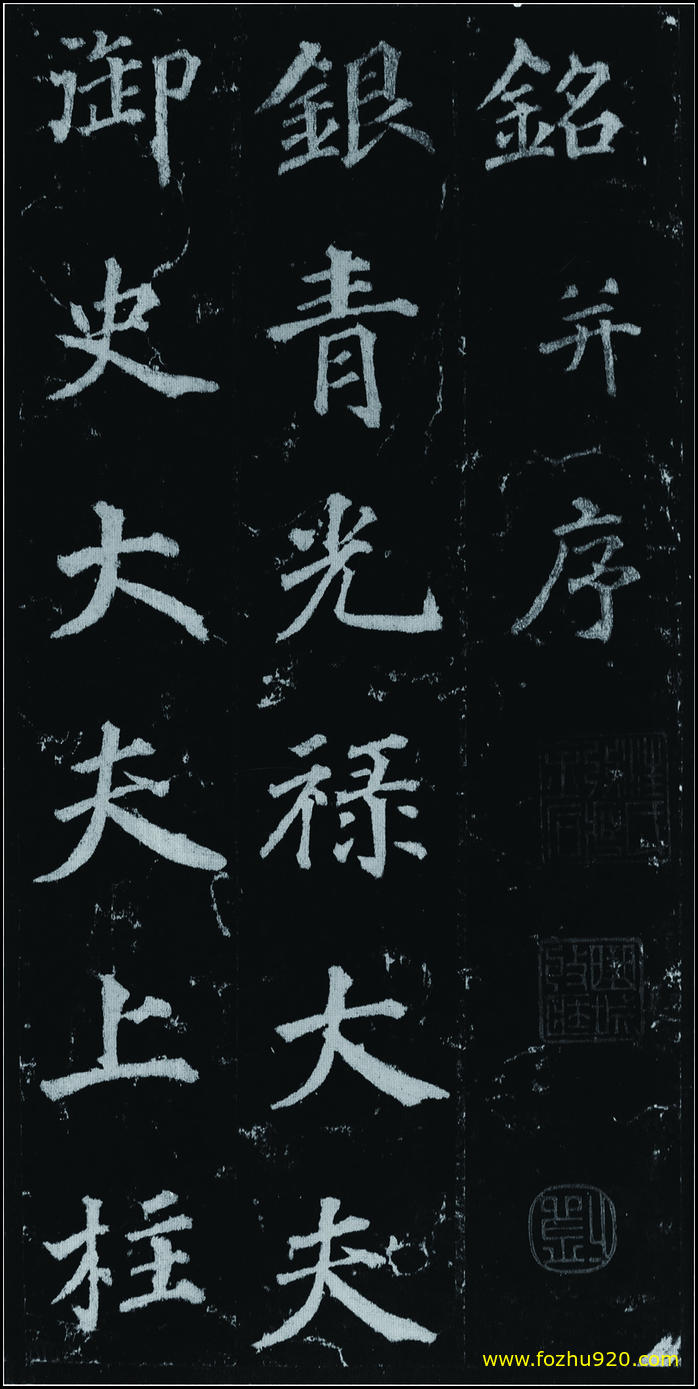 銘并序
銀青光禄大夫
御史大夫上柱
www.fozhu920.com